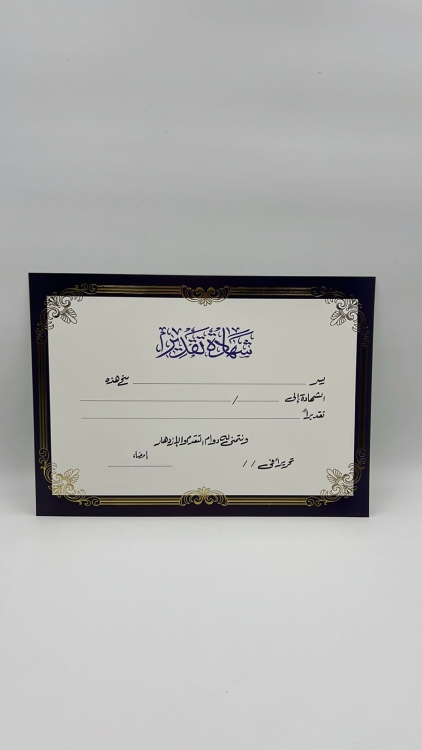 شهادة تقدير
يسر ________ منح هذه
الشهادة إلى ________ / ________
تقديراً ________
ونتمنى له دوام التقدم والإزدهار
تحريراً في / / إمضاء ________